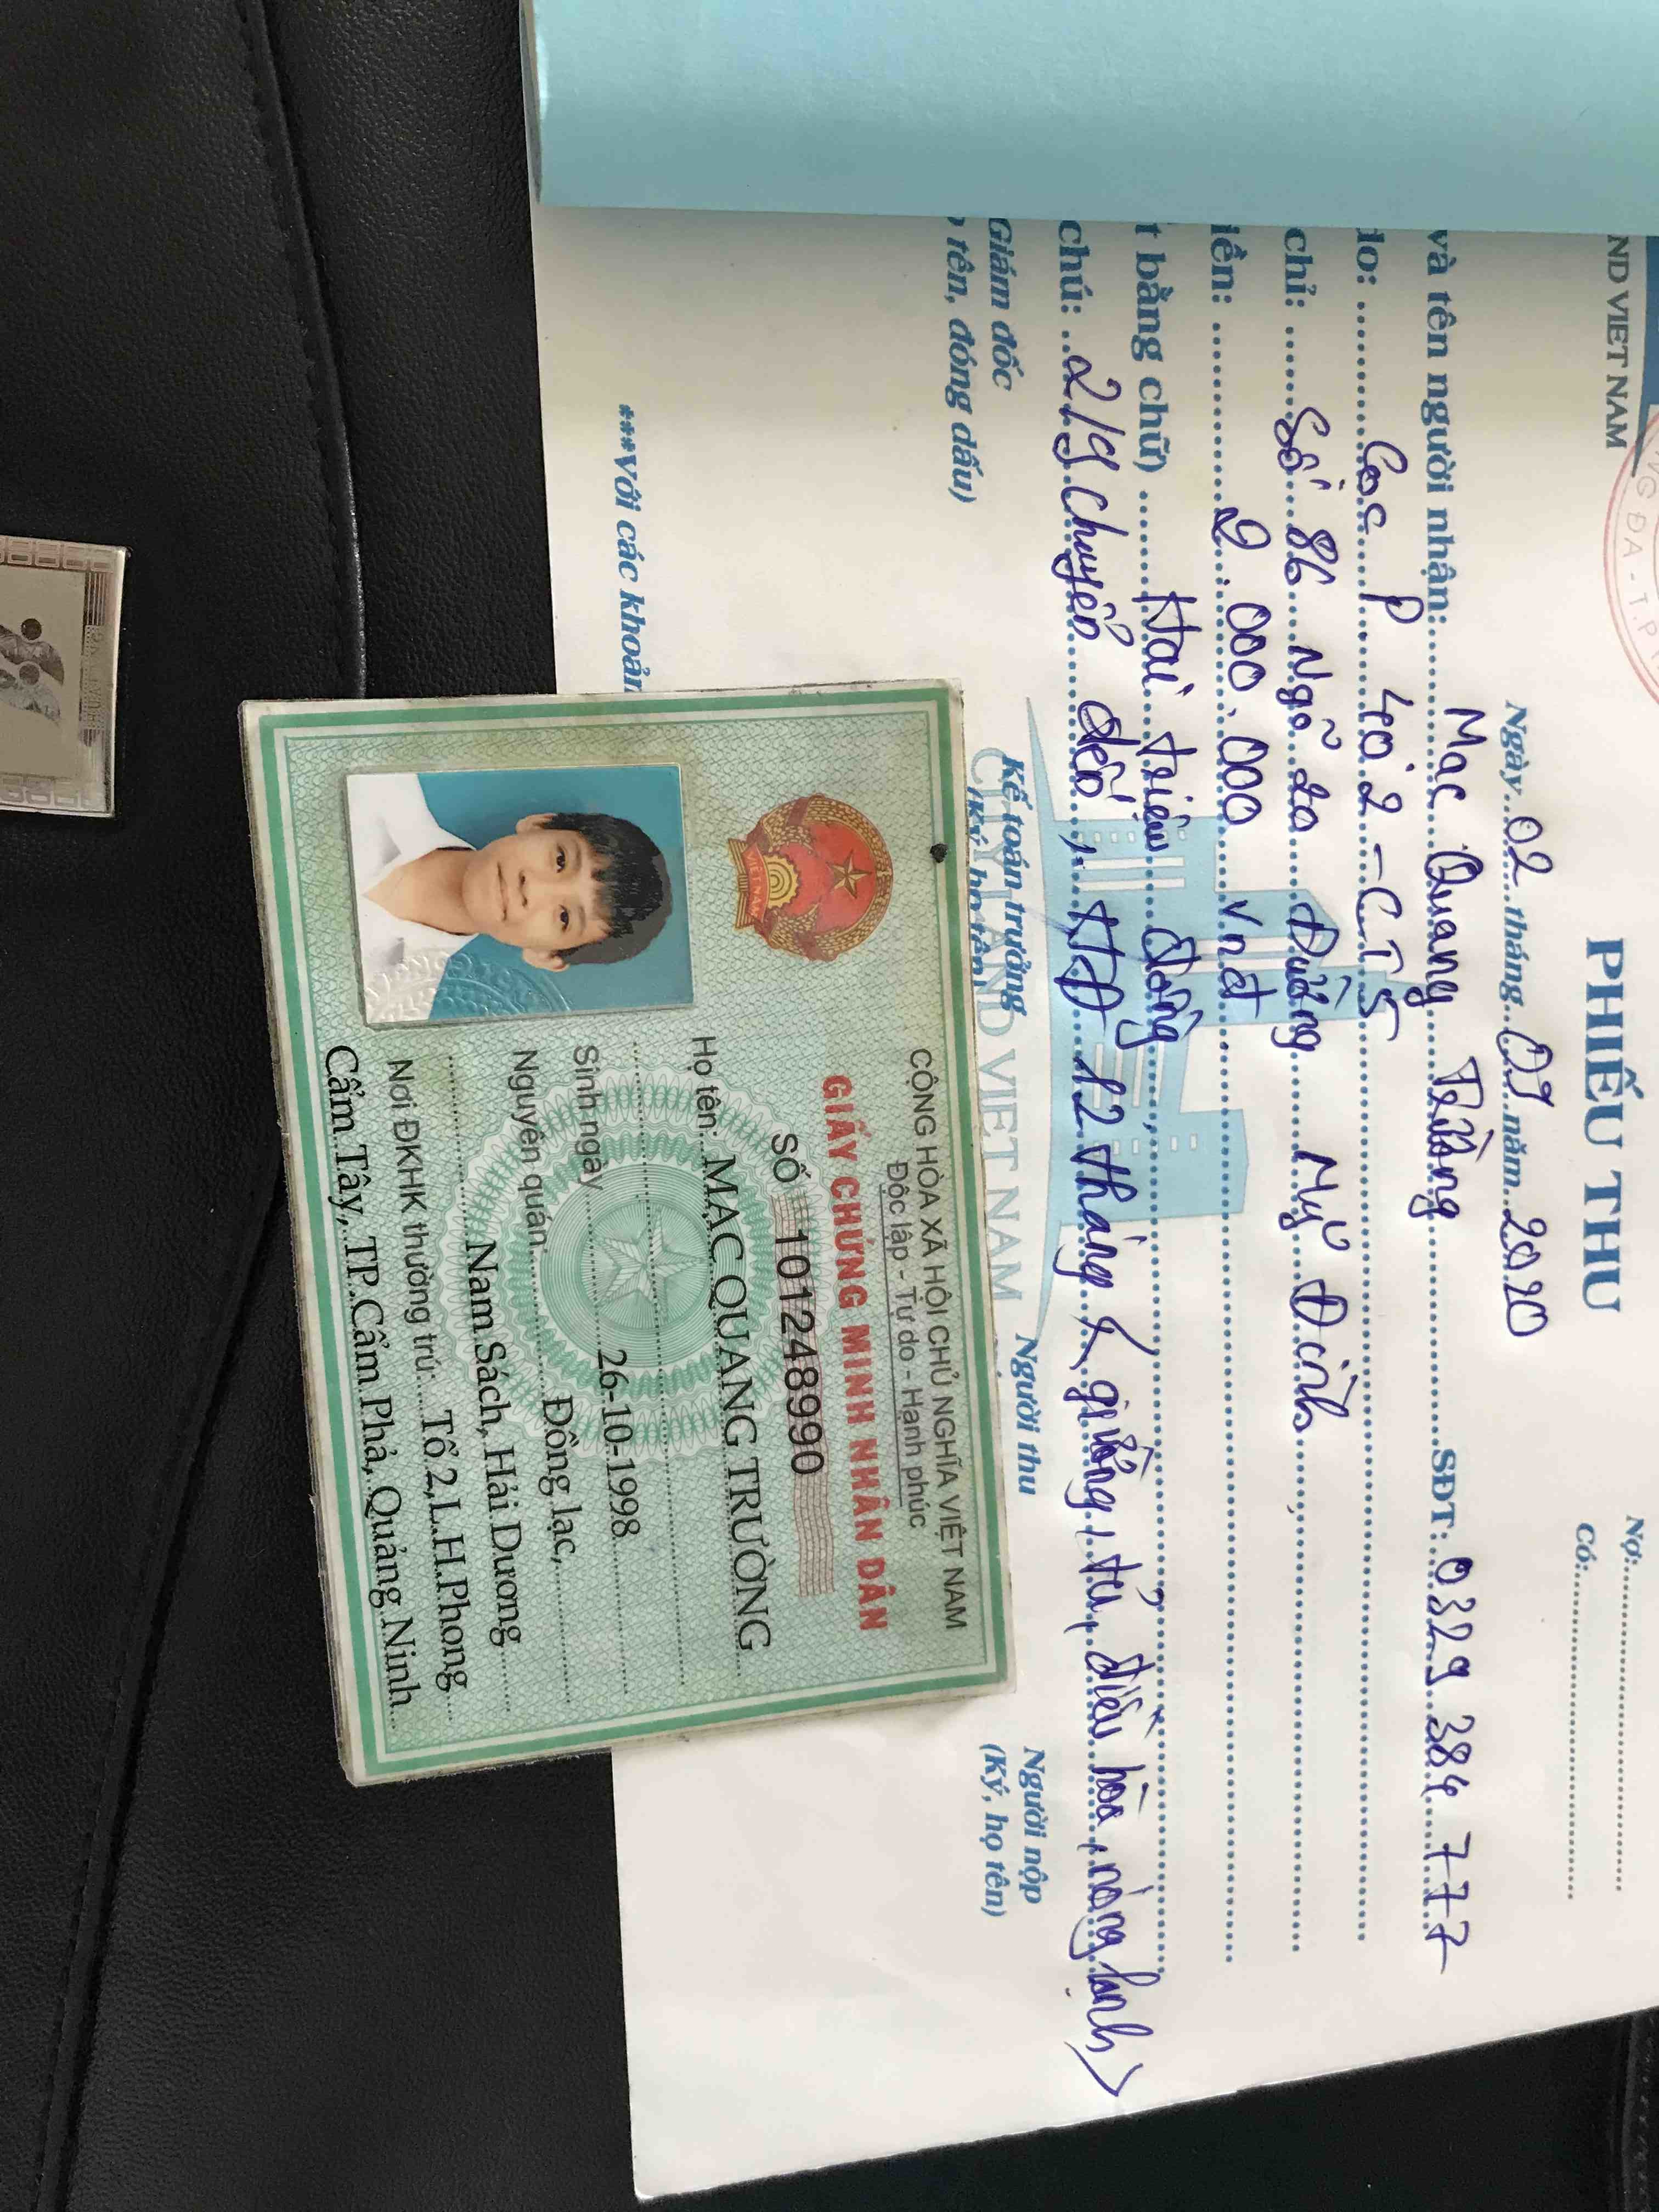 ND VIET NAM
NG ĐA - T.P
PHIẾU THU
Nợ:
Có:
Ngày 02 tháng 09 năm 2020
và tên người nhận: Mạc Quang Trường SĐT: 0329 384 777
do: Cọc P 402 - CT5
chỉ: Số 86 Ngõ 20 Đường Mỹ Đình
iền: 2.000.000 vnđ
t bằng chữ) Hai triệu đồng
chú: 2/9 chuyển đến, HĐ 12 tháng ( giường, tủ, điều hòa, nóng lạnh)
Giám đốc
tên, đóng dấu)
Kế toán trưởng
(Ký, họ tên)
Người thu
Người nộp
(Ký, họ tên)
CITY LAND VIET NAM
***Với các khoản
CỘNG HÒA XÃ HỘI CHỦ NGHĨA VIỆT NAM
Độc lập - Tự do - Hạnh phúc
GIẤY CHỨNG MINH NHÂN DÂN
SỐ 101248990
Họ tên: MẠC QUANG TRƯỜNG
Sinh ngày 26-10-1998
Nguyên quán: Đồng lạc,
Nam Sách, Hải Dương
Nơi ĐKHK thường trú: Tổ 2, L.H.Phong
Cẩm Tây, TP.Cẩm Phả, Quảng Ninh
VIỆT NAM